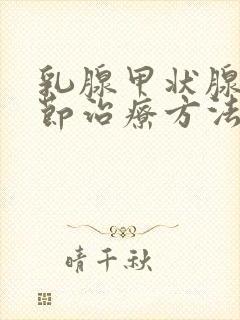 乳腺甲状腺
节治疗方法
晴千秋